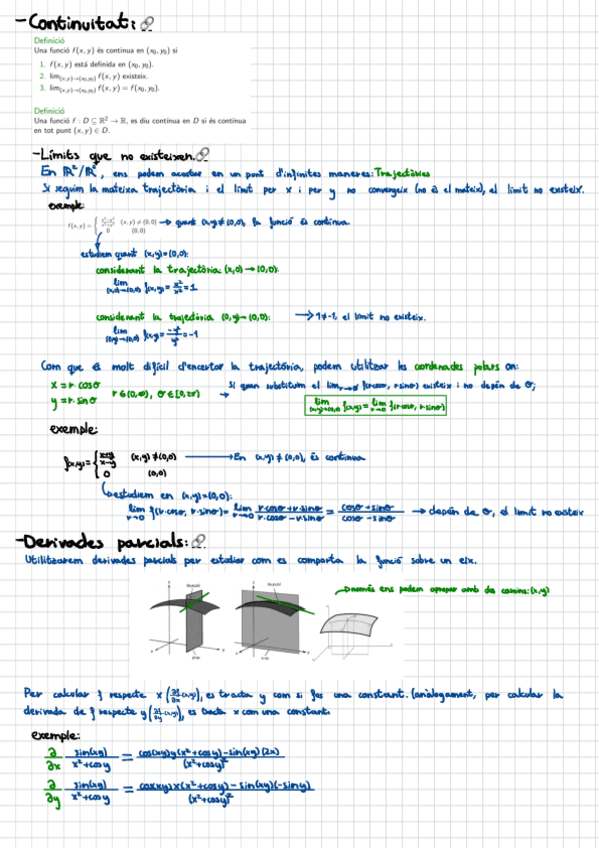 -Continuitat:
Definició
Una funció f(x, y) és contínua en (x₀, y₀) si
1. f(x, y) està definida en (x₀, y₀).
2. lim₍ₓ,ᵧ₎→₍ₓ₀,ᵧ₀₎ f(x, y) existeix.
3. lim₍ₓ,ᵧ₎→₍ₓ₀,ᵧ₀₎ f(x, y) = f(x₀, y₀).
Definició
Una funció f : D ⊆ ℝ² → ℝ, es diu contínua en D si és contínua
en tot punt (x, y) ∈ D.
-Límits que no existeixen.
En ℝ²/ℝ³, ens podem acostar en un punt d'infinites maneres: Trajectòries
Si seguim la mateixa trajectòria i el límit per x i per y no convergeix (no és el mateix), el límit no existeix.
exemple:
f(x,y) = { (x, y) ≠ (0,0) → quant (x,y) ≠ (0,0), la funció és contínua
0 (0,0)
estudiem quant (x,y)=(0,0):
considerant la trajectòria (x,0)→(0,0):
lim (x,0)→(0,0) f(x,y)= x²/x² = 1
considerant la trajectòria (0,y)→(0,0): → 1≠-1, el límit no existeix.
lim (0,y)→(0,0) f(x,y)= -y²/y² = -1
Com que és molt difícil d'encertar la trajectòria, podem utilitzar les coordenades polars on:
x = r·cosσ
y = r·sinσ
r∈(0,∞), σ∈[0,2π) →
Si quan substituim el lim r→0 f(r·cosσ, r·sinσ) existeix i no depèn de σ;
lim (x,y)→(0,0) f(x,y) = lim r→0 f(r·cosσ, r·sinσ)
exemple:
f(x,y) = { x+y/x-y (x,y) ≠ (0,0) → En (x,y) ≠ (0,0), és contínua
0 (0,0)
estudiem en (x,y)=(0,0):
lim r→0 f(r·cosσ, r·sinσ) = lim r→0 r·cosσ+r·sinσ / r·cosσ-r·sinσ = cosσ+sinσ / cosσ-sinσ → depèn de σ, el límit no existeix
-Derivades parcials:
Utilitzarem derivades parcials per estudiar com es comporta la funció sobre un eix.
Només ens podem apropar amb dos camins: (x,y)
Per calcular f respecte x (∂f/∂x (x,y)), es tracta y com si fos una constant. (anàlogament, per calcular la
derivada de f respecte y (∂f/∂y (x,y)), es tracta x com una constant.
exemple:
∂/∂x sin(xy) / x²+cosy = cos(xy)y(x²+cosy)-sin(xy)(2x) / (x²+cosy)²
∂/∂y sin(xy) / x²+cosy = cos(xy)x(x²+cosy)-sin(xy)(-siny) / (x²+cosy)²